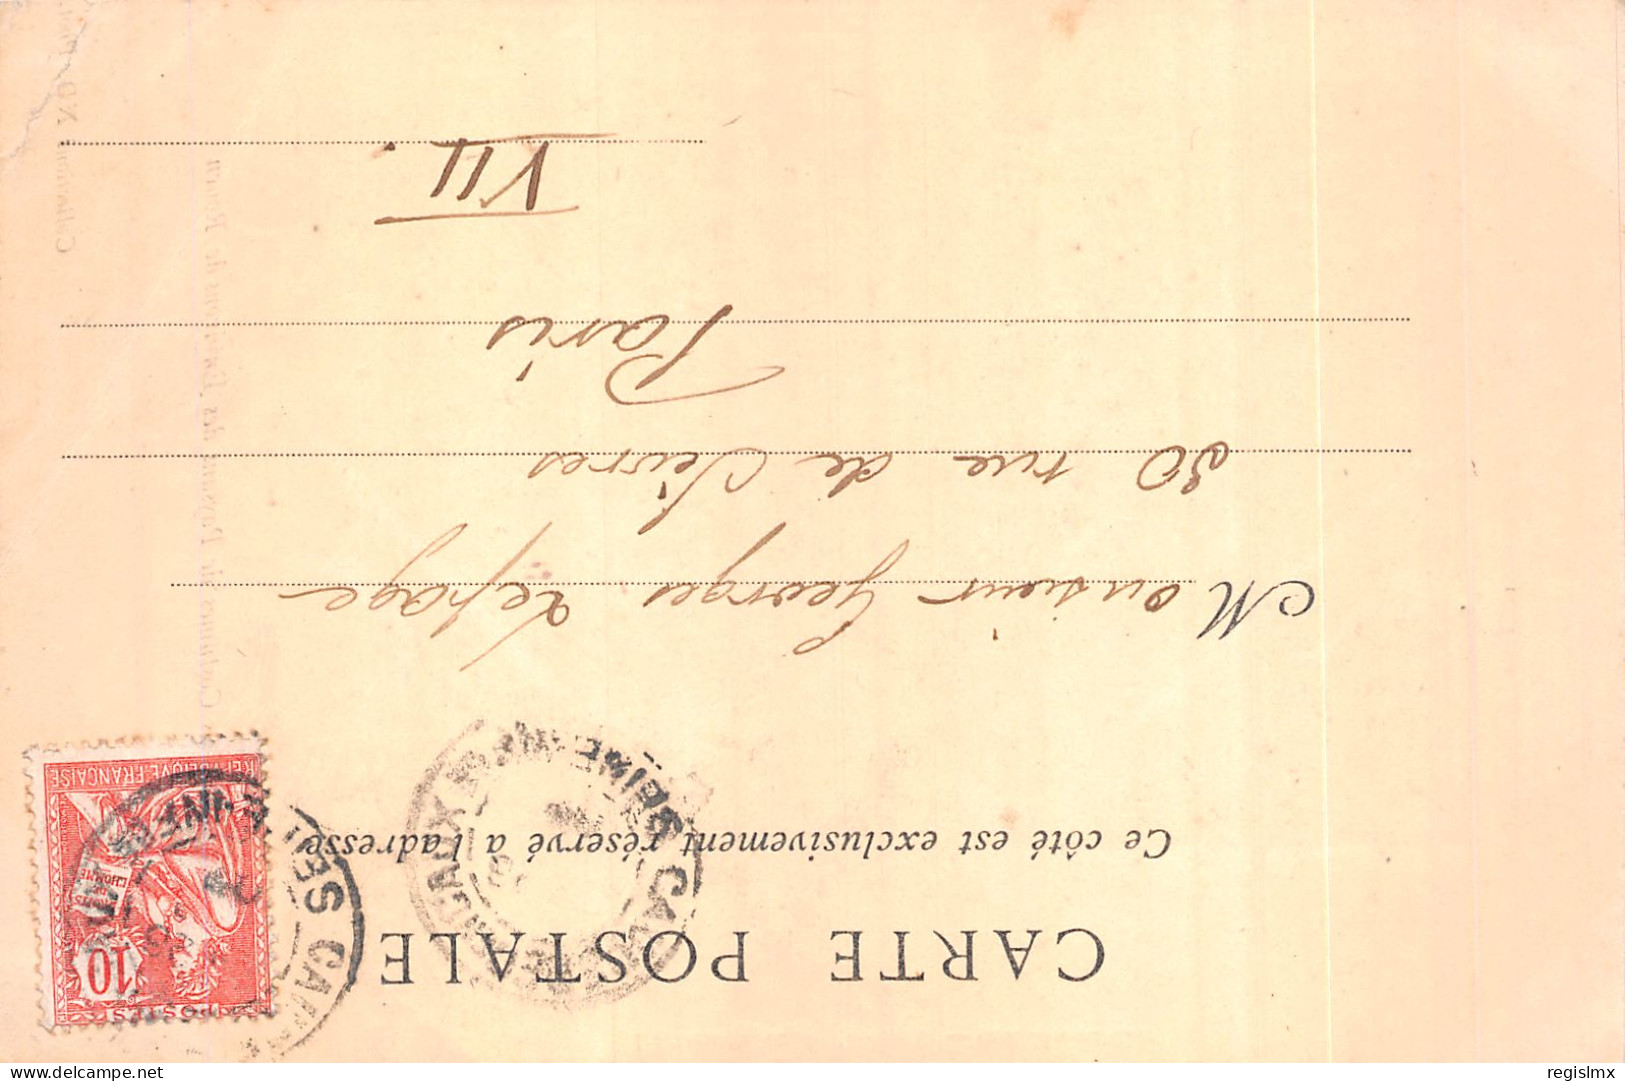 CARTE POSTALE
Ce côté est exclusivement réservé à l'adresse
Monsieur Georges Lepage
30 rue de Sèvres
Paris
VII.
REPUBLIQUE FRANÇAISE
DROITS
DE
L'HOMME
10
POSTES
delcampe.net
regislmx